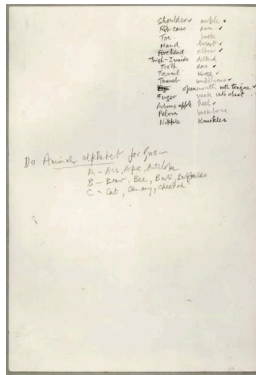 Shoulders ankle ✓
Rib cone arm ✓
Toe
Hand breast ✓
Forehead elbow ✓
Thigh-Inside
Teeth ear ✓
Tonsil ✓
open mouth with tongue ✓
Finger
Adams apple heel ✓
Pelvis backbone
Nipple Knuckles
Do Animal alphabet for Gus —
A — Ass, Ape, Antelope
B — Bear, Bee, Bull, Buffalo
C — Cat, Canary, Cheetah